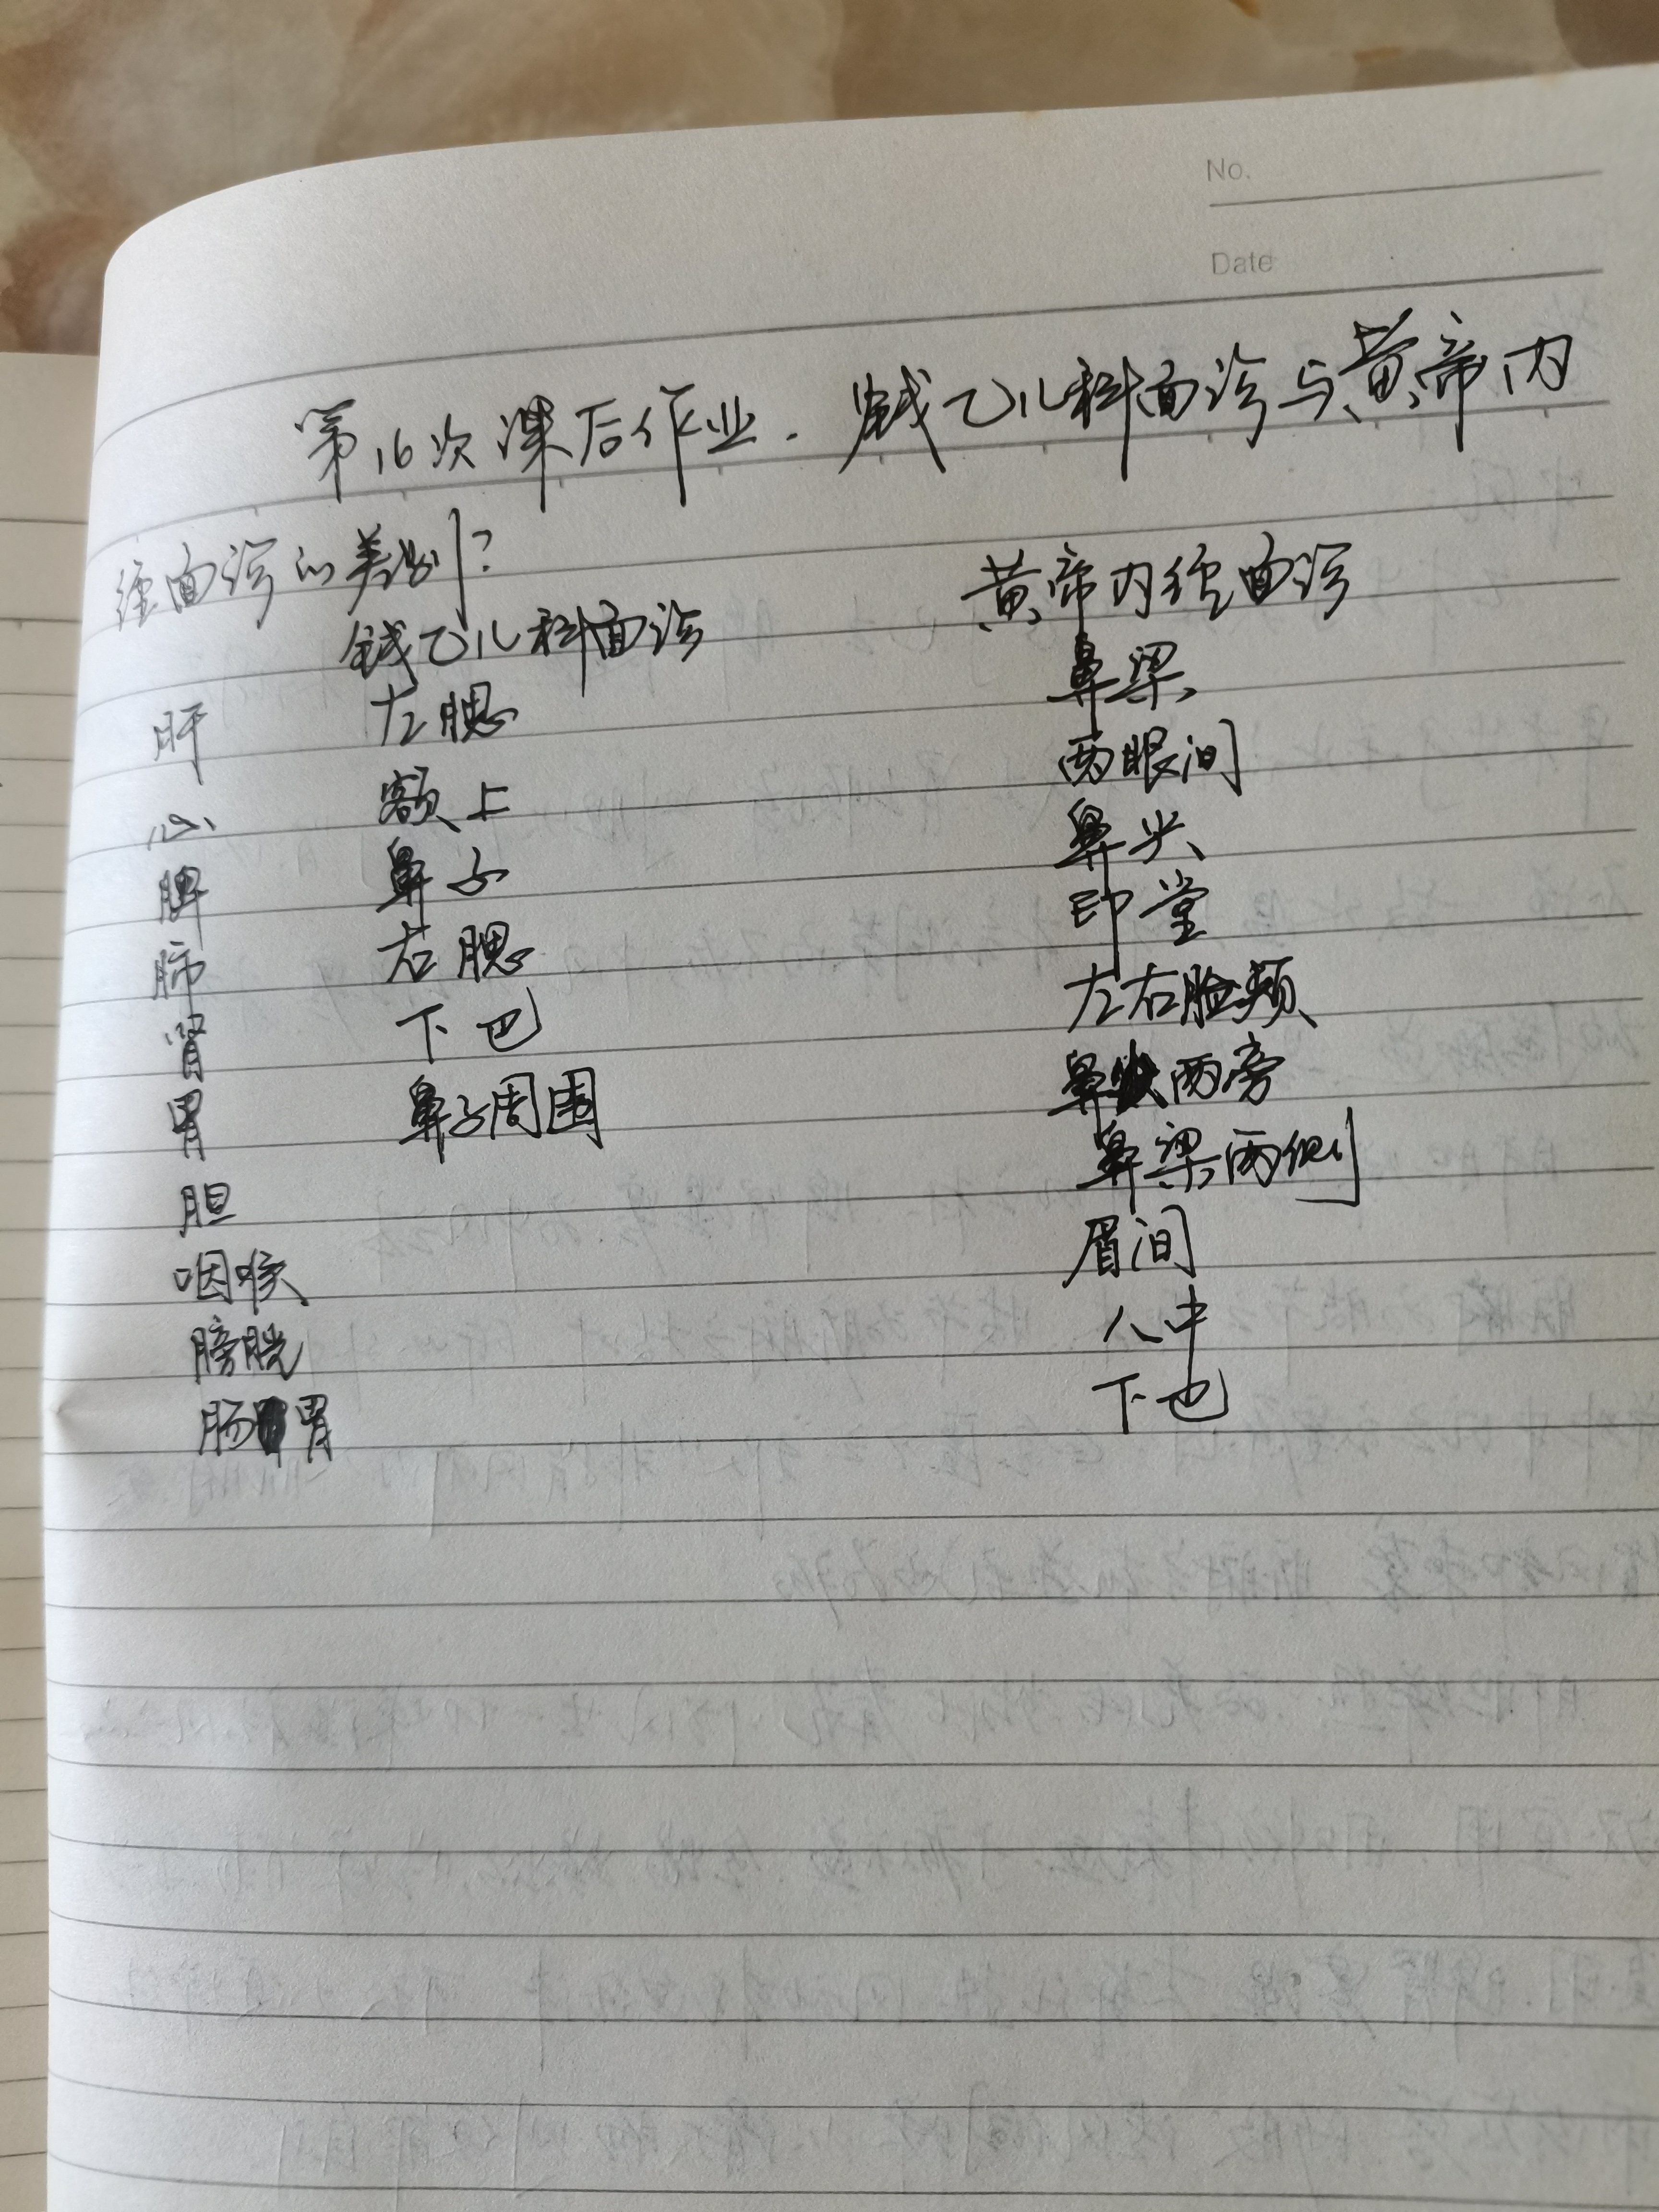 No.
Date
第16次课后作业. 钱乙儿科面诊与黄帝内
经面诊的差别?
钱乙儿科面诊 黄帝内经面诊
肝 左腮 鼻梁
心 额上 两眼间
脾 鼻子 鼻头
肺 右腮 印堂
肾 下巴 左右脸颊
胃 鼻子周围 鼻头两旁
胆 鼻梁两侧
咽喉 眉间
膀胱 人中
肠胃 下也